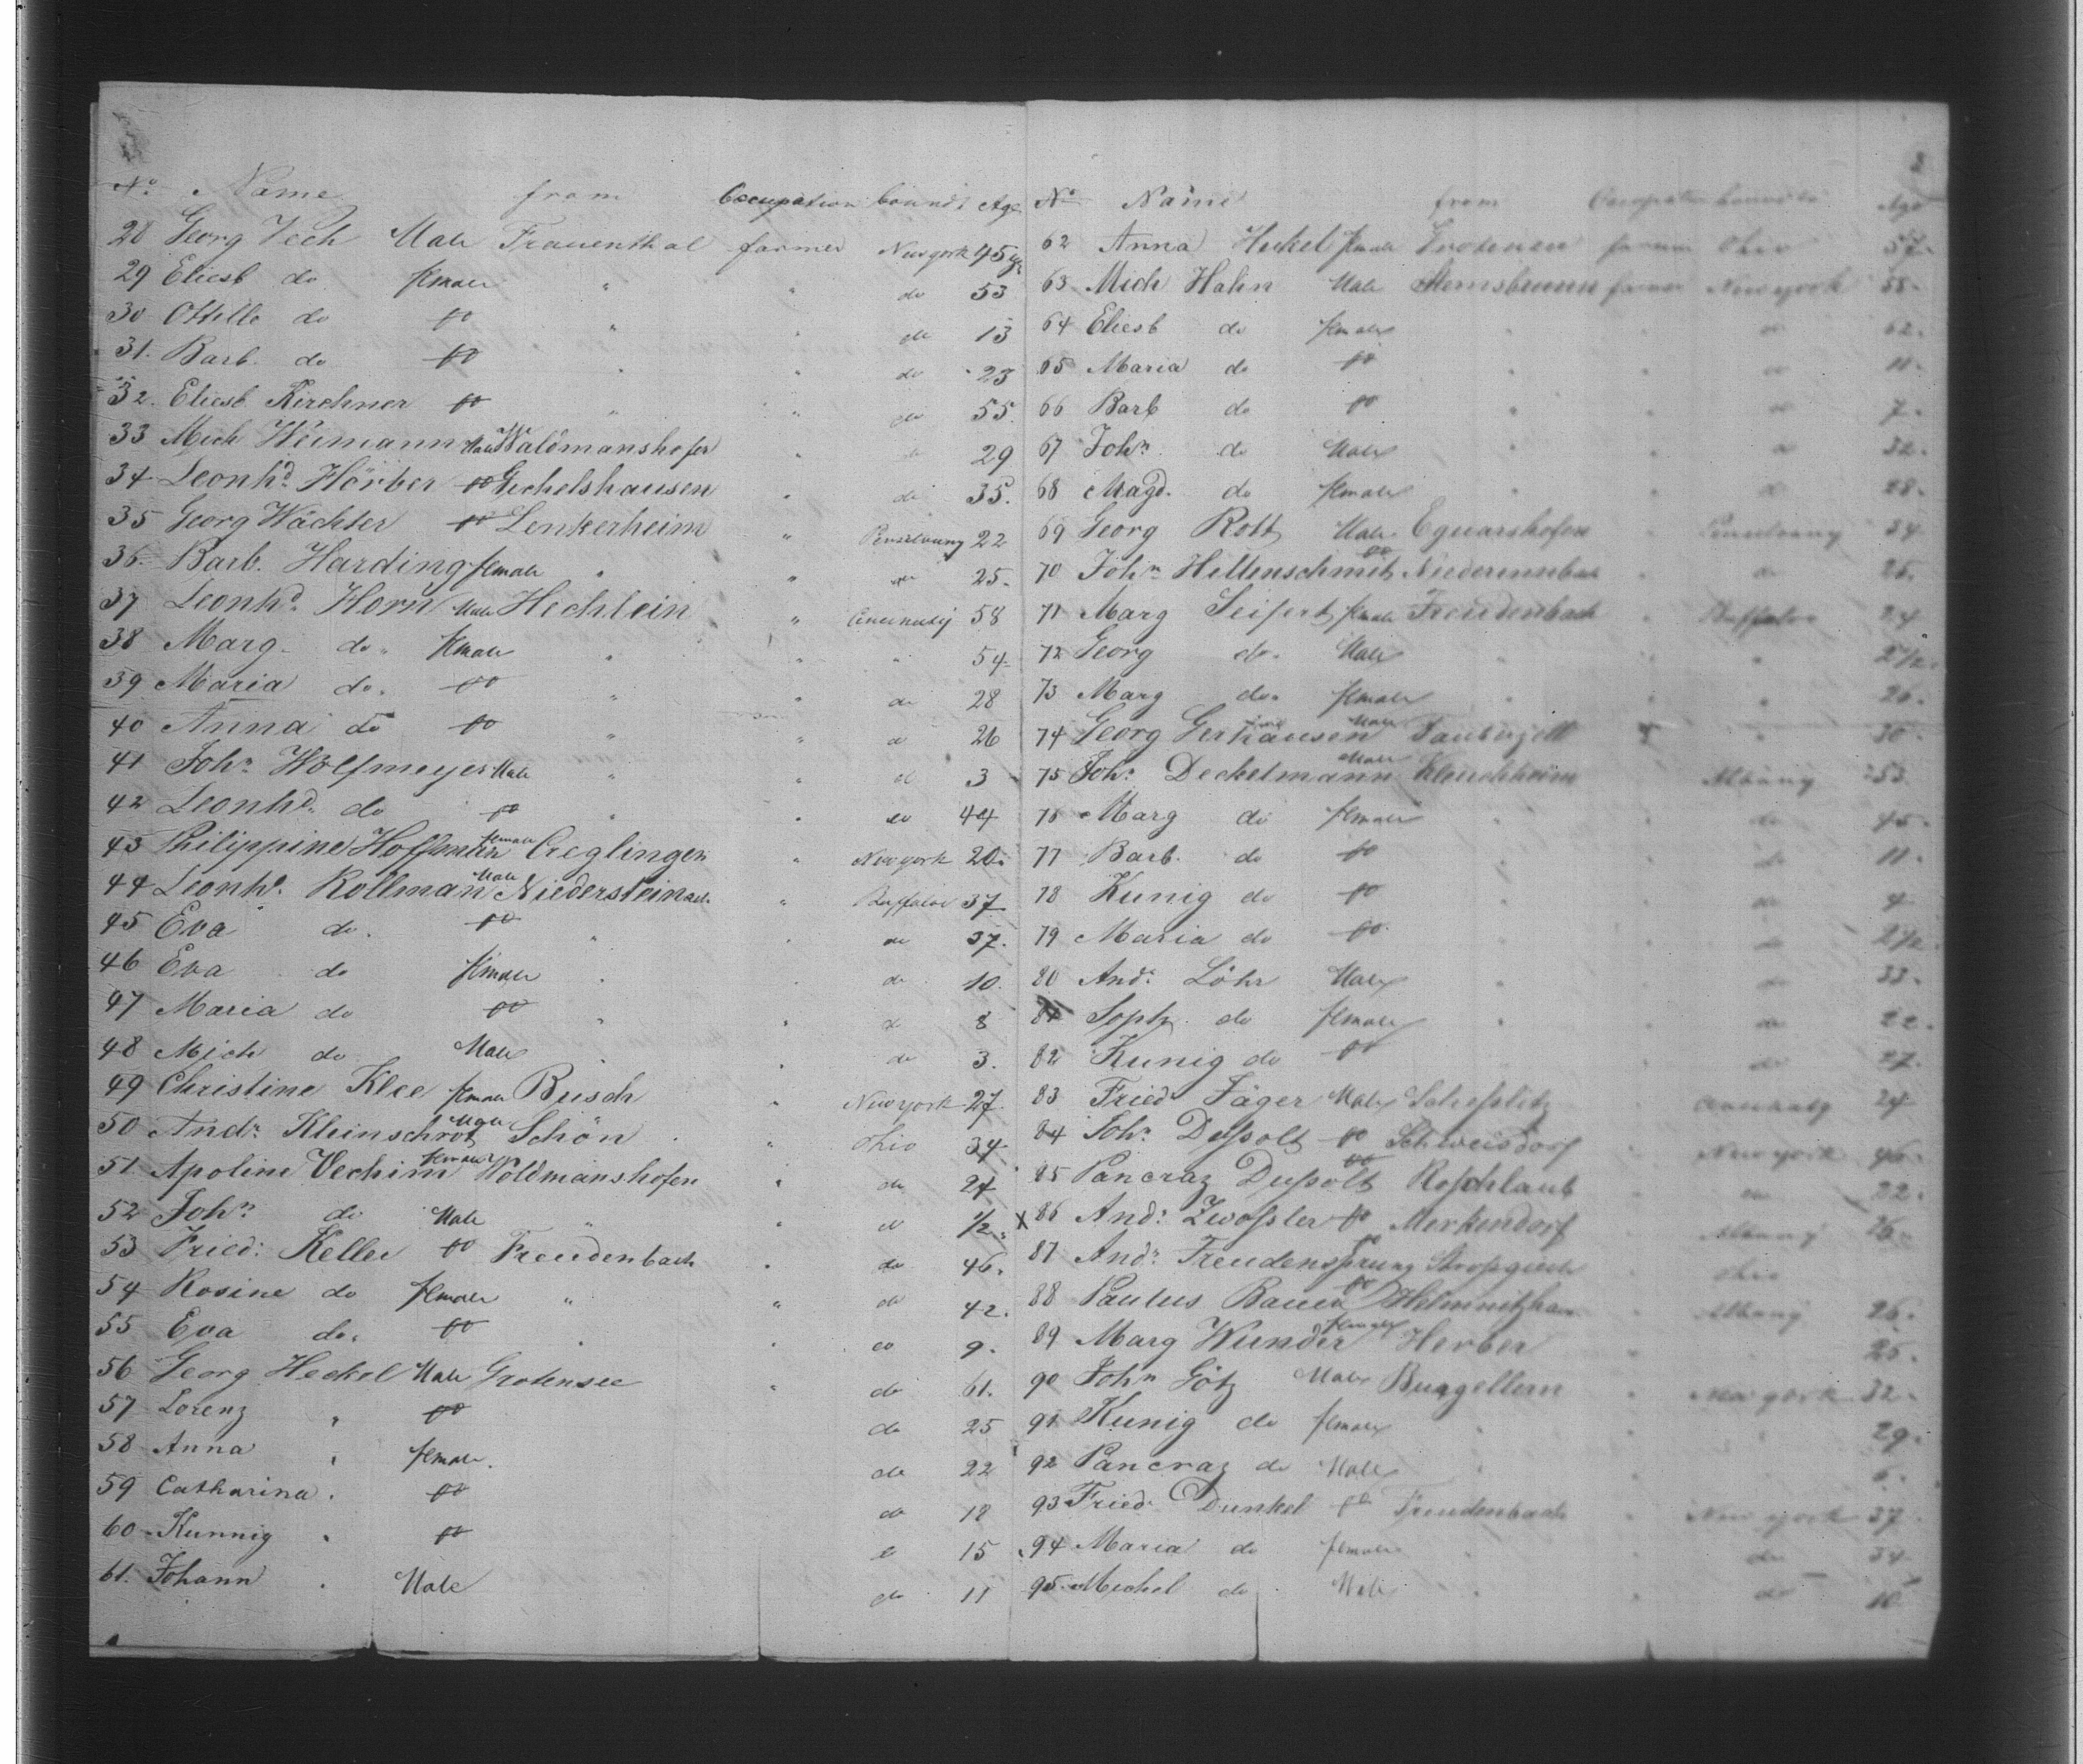 No. Name from Occupation bound Age
28 Georg Vech Male Frauenthal farmer Newyork 45 y
29 Eliesb do female " " do 53
30 Ottille do do " " do 13
31. Barb. do do " " do 23
32. Eliesb Kirchner do " " do 55.
33 Mich Weimann Male Waldmanshofen " do 29
34 Leonhd. Hörber do Gechelshausen " do 35.
35 Georg Wächter do Lenkerheim " Penselvany 22
36. Barb. Harding female " " do 25.
37 Leonhd. Horn Male Hechlein " Cincinaty 58
38 Marg. do " female " " " 54
39 Maria do. do " " do 28
40 Anna do do " " do 26
41 John. Wolfmeyer Male " " do 3
42 Leonhd. do do " " do 44
43 Philippine Hoffmann female Creglingen " Newyork 20.
44 Leonhd. Rollman Male Niedersteinach " Buffaloe 37
45 Eva do. do " " do 37.
46 Eva do female " " do 10.
47 Maria do do " " do 8
48 Mich do Male " " do 3.
49 Christine Klee female Busch " Newyork 27
50 Andr. Kleinschrot Male Schön " Ohio 34
51 Apoline Vechim female Woldmanshofen " do 24
52 John do Male " " do 1/2.
53 Fried: Keller do Freudenbach " do 46.
54 Rosine do female " " do 42.
55 Eva do. do " " do 9.
56 Georg Heckel Male Grotensee " do 61.
57 Lorenz " do do 25
58 Anna " female. do 22
59 Catharina " do do 18
60 Kunnig " do do 15
61. Johann " Male do 11
No. Name from Occupation bound to Age
62 Anna Heckel female farmer Ohio 57.
63 Mich Hahn Male farmer Newyork 55.
64 Eliesb do female " " do 62.
65 Maria do do " " do 11.
66 Barb do do " " do 7.
67 John. do Male " " do 32.
68 Magd. do female " " do 28.
69 Georg Rott Male Equarshofen " Penselvany 34
70 John Hellenschmit do " do 25.
71 Marg Seifert female Freudenbach " Buffaloe 24
72 Georg do. Male " " " 2 1/2.
73 Marg do. female " " " 26.
74 Georg Gerhäusen Male Tauberzell " 30.
75 Johr. Deckelmann Male " Albany 53
76 Marg do female " " do 45.
77 Barb. do do " " do 11.
78 Kunig do do " " do 4
79 Maria do do " " do 2 1/2.
80 Andr. Löhr Male " " do 33.
81 Soph. do female " " do 22.
82 Kunig do do " " do 27.
83 Fried Jäger Male " Cincinaty 24
84 Johr. Deßolt do Schweisdorf " Newyork 46.
85 Pancraz Deßolt do Roschlaub " do 22.
X 86 Andr. Zwoßler do Merkendorf " Albany 26.
87 Andr. Freudensprung do " Ohio
88 Paulus Bauer do " Albany 26.
89 Marg Wunder female Herber " " 25.
90 John Götz Male Burgellern " Newyork 32.
91 Kunig do female " " 29.
92 Pancraz do Male "
93 Fried. Dunkel do Freudenbach " New york 37
94 Maria do female " " do 34
95. Michel do Male " " do 10